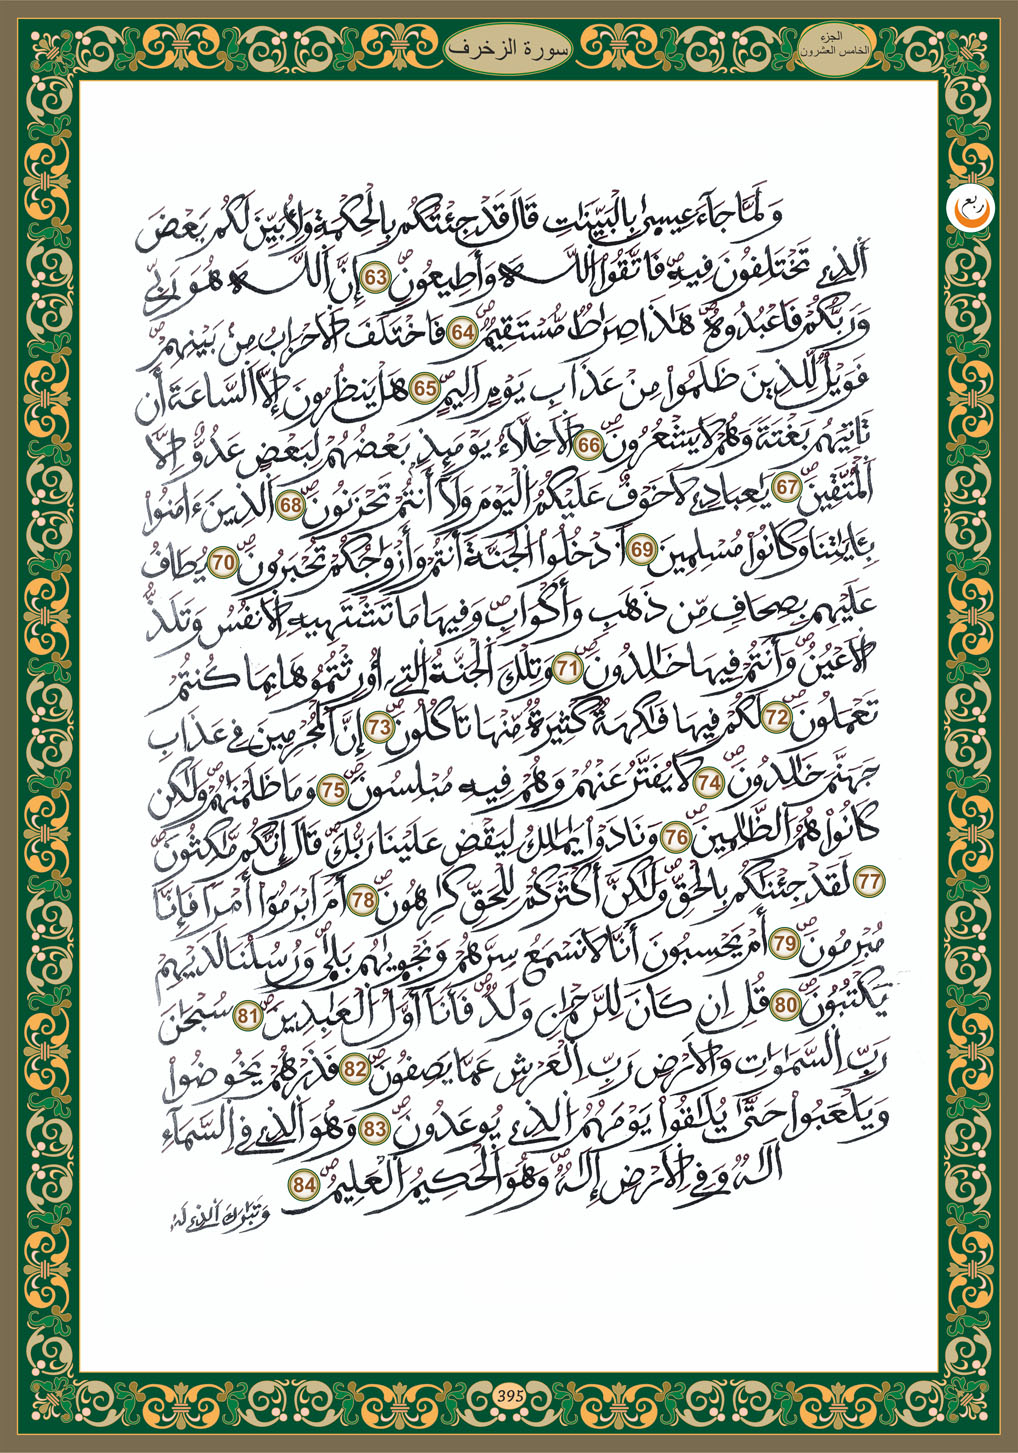 سورة الزخرف
الجزء
الخامس العشرون
ربع
وَلَمَّا جَآءَ عِيسىٰ بِالْبَيِّنَٰتِ قَالَ قَدْ جِئْتُكُم بِالْحِكْمَةِ وَلِأُبَيِّنَ لَكُم بَعْضَ
اَلذِے تَخْتَلِفُونَ فِيهِۖ فَاتَّقُوا۟ اُللَّهَ وَأَطِيعُونِۖ 63 إِنَّ اَللَّهَ هُوَ رَبِّے
وَرَبُّكُمْ فَاعْبُدُوهُۖ هَٰذَا صِرَاطٌ مُّسْتَقِيمٌۖ 64 فَاخْتَلَفَ اَلَاحْزَابُ مِنۢ بَيْنِهِمْ
فَوَيْلٌ لِّلذِينَ ظَلَمُوا۟ مِنْ عَذَابِ يَوْمٍ اَلِيمٍۖ 65 هَلْ يَنظُرُونَ إِلَّا اَلسَّاعَةَ أَن
تَاتِيَهُم بَغْتَةً وَهُمْ لَا يَشْعُرُونَۖ 66 اَلَاخِلَّآءُ يَوْمَئِذِۭ بَعْضُهُمْ لِبَعْضٍ عَدُوٌّ اِلَّا
اَلْمُتَّقِينَۖ 67 يَٰعِبَادِے لَا خَوْفٌ عَلَيْكُمُ اُلْيَوْمَ وَلَآ أَنتُمْ تَحْزَنُونَۖ 68 اَلذِينَ ءَامَنُوا۟
بِـَٔايَٰتِنَا وَكَانُوا۟ مُسْلِمِينَۖ 69 اَدْخُلُوا۟ اُلْجَنَّةَ أَنتُمْ وَأَزْوَٰجُكُمْ تُحْبَرُونَۖ 70 يُطَافُ
عَلَيْهِم بِصِحَافٍ مِّن ذَهَبٍ وَأَكْوَابٍۖ وَفِيهَا مَا تَشْتَهِيهِ اِلَانفُسُ وَتَلَذُّ
اُلَاعْيُنُۖ وَأَنتُمْ فِيهَا خَٰلِدُونَۖ 71 وَتِلْكَ اَلْجَنَّةُ اُلتِےٓ أُورِثْتُمُوهَا بِمَا كُنتُمْ
تَعْمَلُونَۖ 72 لَكُمْ فِيهَا فَٰكِهَةٌ كَثِيرَةٌ مِّنْهَا تَاكُلُونَۖ 73 إِنَّ اَلْمُجْرِمِينَ فِے عَذَابِ
جَهَنَّمَ خَٰلِدُونَۖ 74 لَا يُفَتَّرُ عَنْهُمْ وَهُمْ فِيهِ مُبْلِسُونَۖ 75 وَمَا ظَلَمْنَٰهُمْ وَلَٰكِن
كَانُوا۟ هُمُ اُلظَّٰلِمِينَۖ 76 وَنَادَوْا۟ يَٰمَٰلِكُ لِيَقْضِ عَلَيْنَا رَبُّكَۖ قَالَ إِنَّكُم مَّٰكِثُونَۖ
77 لَقَدْ جِئْنَٰكُم بِالْحَقِّۖ وَلَٰكِنَّ أَكْثَرَكُمْ لِلْحَقِّ كَٰرِهُونَۖ 78 أَمَ اَبْرَمُوٓا۟ أَمْراً فَإِنَّا
مُبْرِمُونَۖ 79 أَمْ يَحْسِبُونَ أَنَّا لَا نَسْمَعُ سِرَّهُمْ وَنَجْوٰيٰهُم بَلٰىۖ وَرُسُلُنَا لَدَيْهِمْ
يَكْتُبُونَۖ 80 قُلِ اِن كَانَ لِلرَّحْمَٰنِ وَلَدٌۖ فَأَنَآ أَوَّلُ اُلْعَٰبِدِينَۖ 81 سُبْحَٰنَ
رَبِّ اِلسَّمَٰوَٰتِ وَالَارْضِ رَبِّ اِلْعَرْشِ عَمَّا يَصِفُونَۖ 82 فَذَرْهُمْ يَخُوضُوا۟
وَيَلْعَبُوا۟ حَتَّىٰ يُلَٰقُوا۟ يَوْمَهُمُ اُلذِے يُوعَدُونَۖ 83 وَهُوَ اَلذِے فِے اِلسَّمَآءِ
اِلَٰهٌ وَفِے اِلَارْضِ إِلَٰهٌۖ وَهُوَ اَلْحَكِيمُ اُلْعَلِيمُۖ 84
وَتَبَٰرَكَ اَلذِے لَهُۥ
395